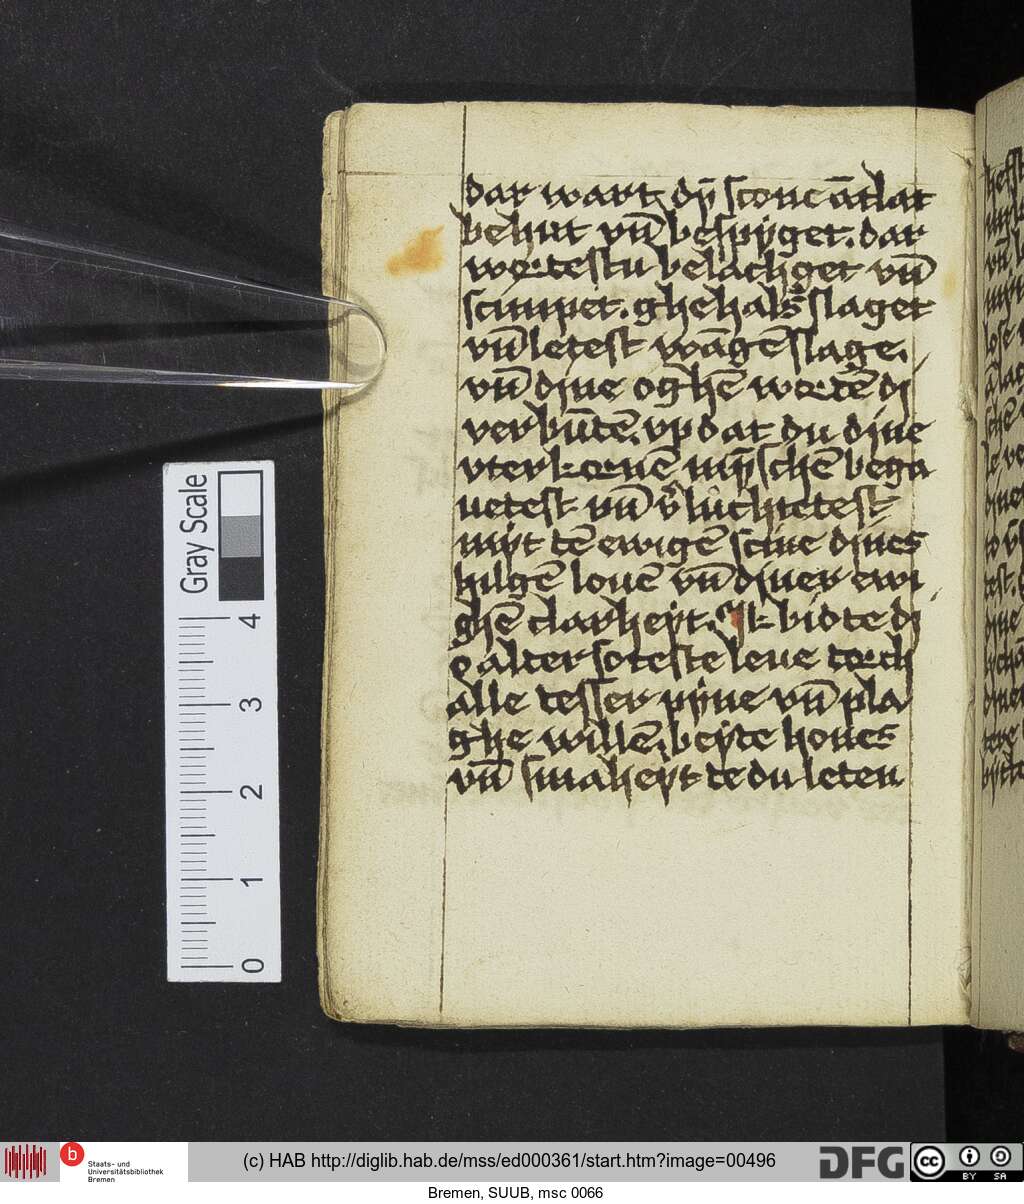 dar wart dÿ scone ātlat
behut vn̄ bespÿget. dar
wortestu belachget vn̄
scimpet. ghehalsslaget
vn̄ letest wāgēslage.
vn̄ dine oghē wortē di
verbūtē. vp dat du dine
vterkornē mÿschē bega
uetest vn̄ v̓luchtetest
mÿt tē ewigē scine dines
hilgē louē vn̄ diner ewi
ghē clarheÿt. Ik bidte di
o alter soteste leue torch
alle tesser pÿne vn̄ pla
ghe willē. beÿte houes
vn̄ smaheÿt te du leten
Gray Scale
4
3
2
1
0
b
Staats- und
Universitätsbibliothek
Bremen
(c) HAB http://diglib.hab.de/mss/ed000361/start.htm?image=00496
DFG
cc
BY SA
Bremen, SUUB, msc 0066